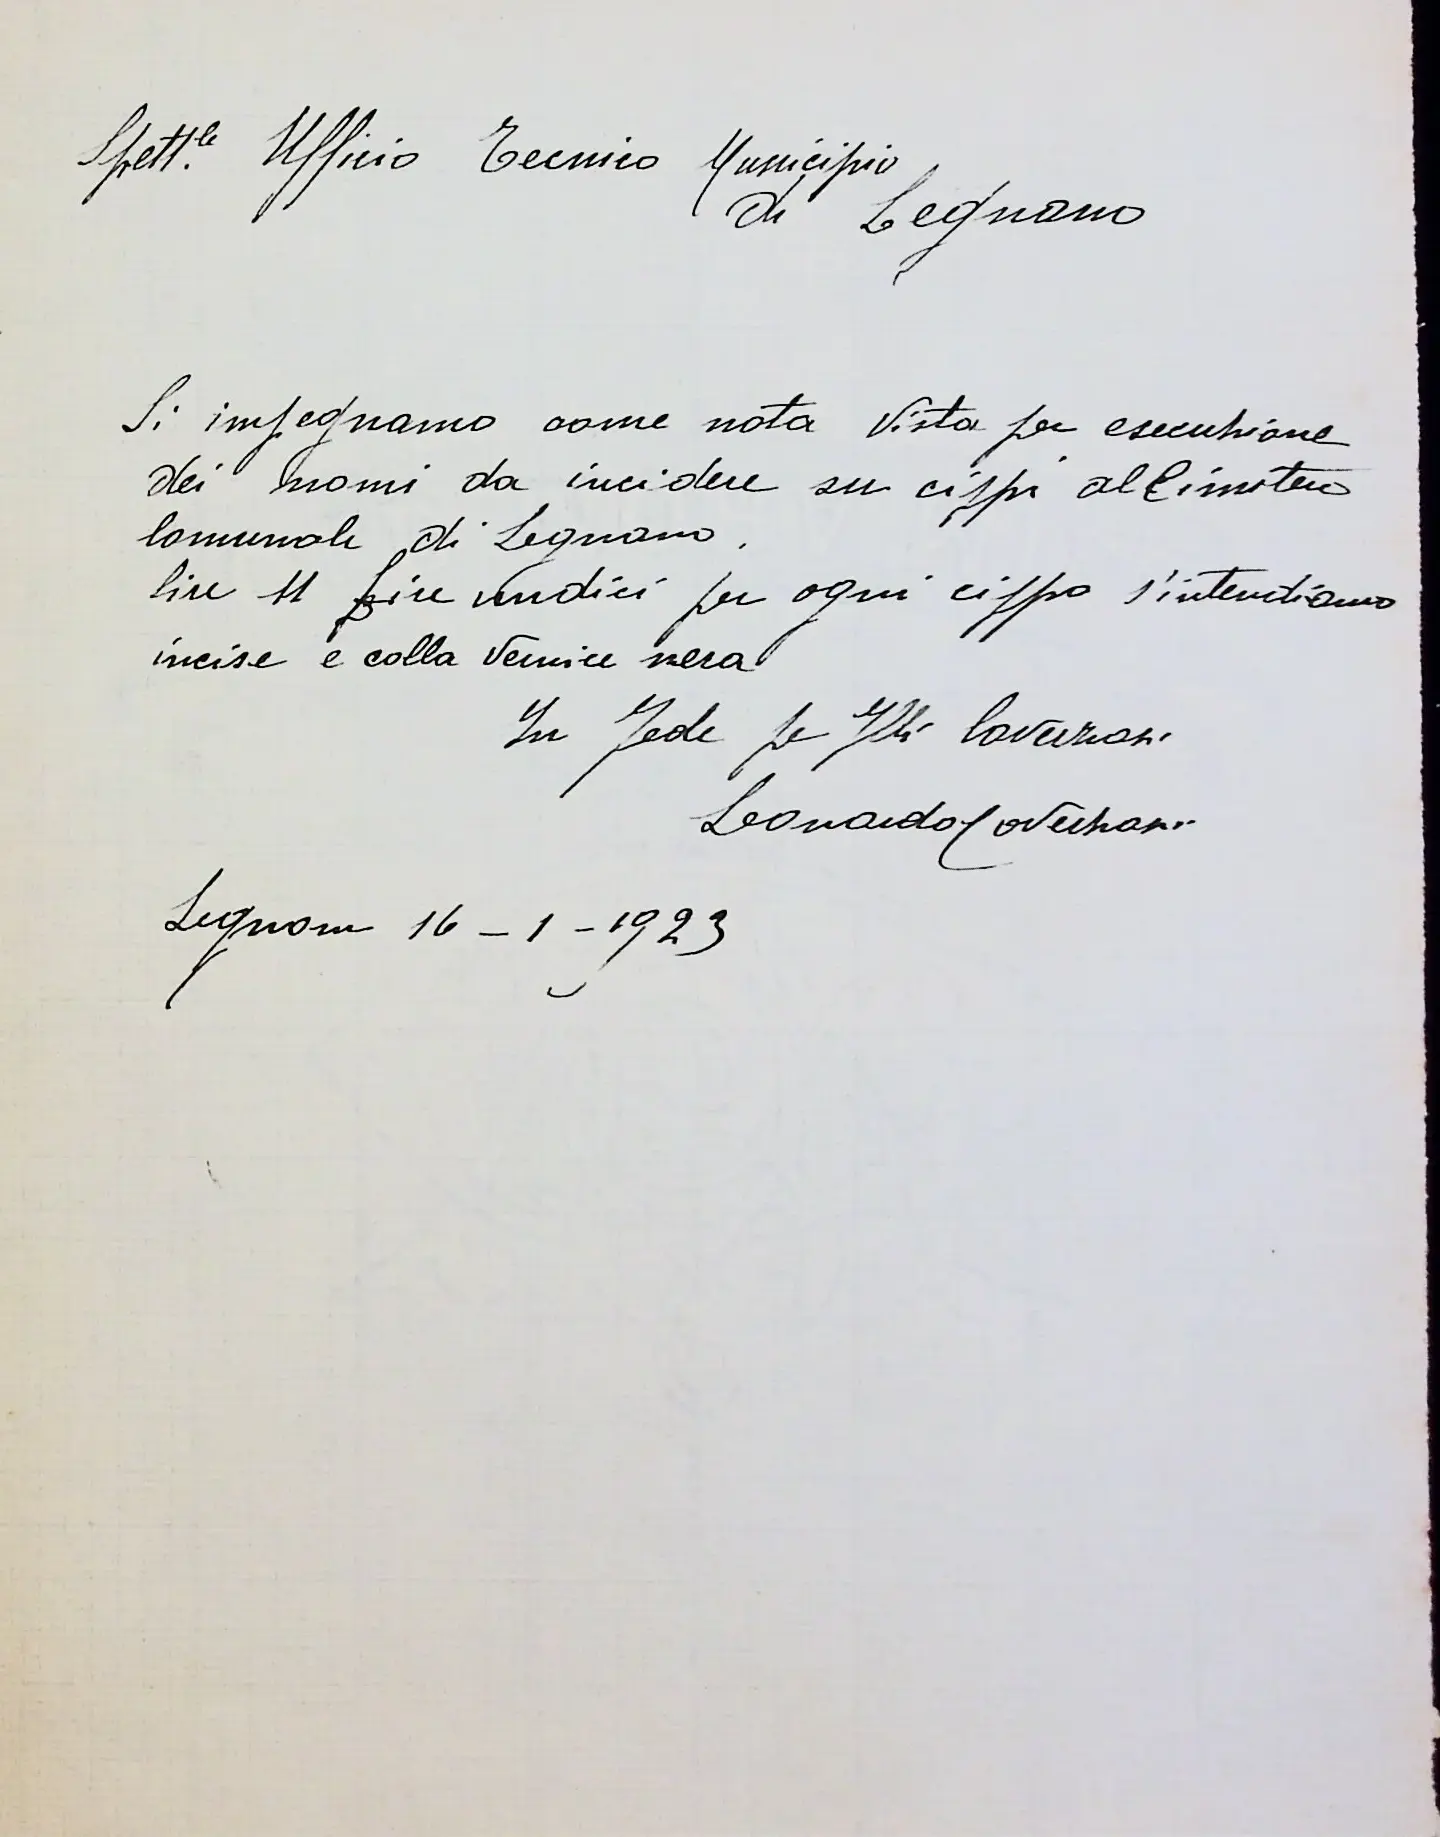 Spett.le Ufficio Tecnico Municipio
di Legnano
Si impegnamo come nota vista per esecuzione
dei nomi da incidere su cippi al Cimitero
Comunale di Legnano.
lire 11 Lire undici per ogni cippo s'intendiamo
incise e colla vernice nera
In fede pe Flli
Leonardo
Legnano 16-1-1923